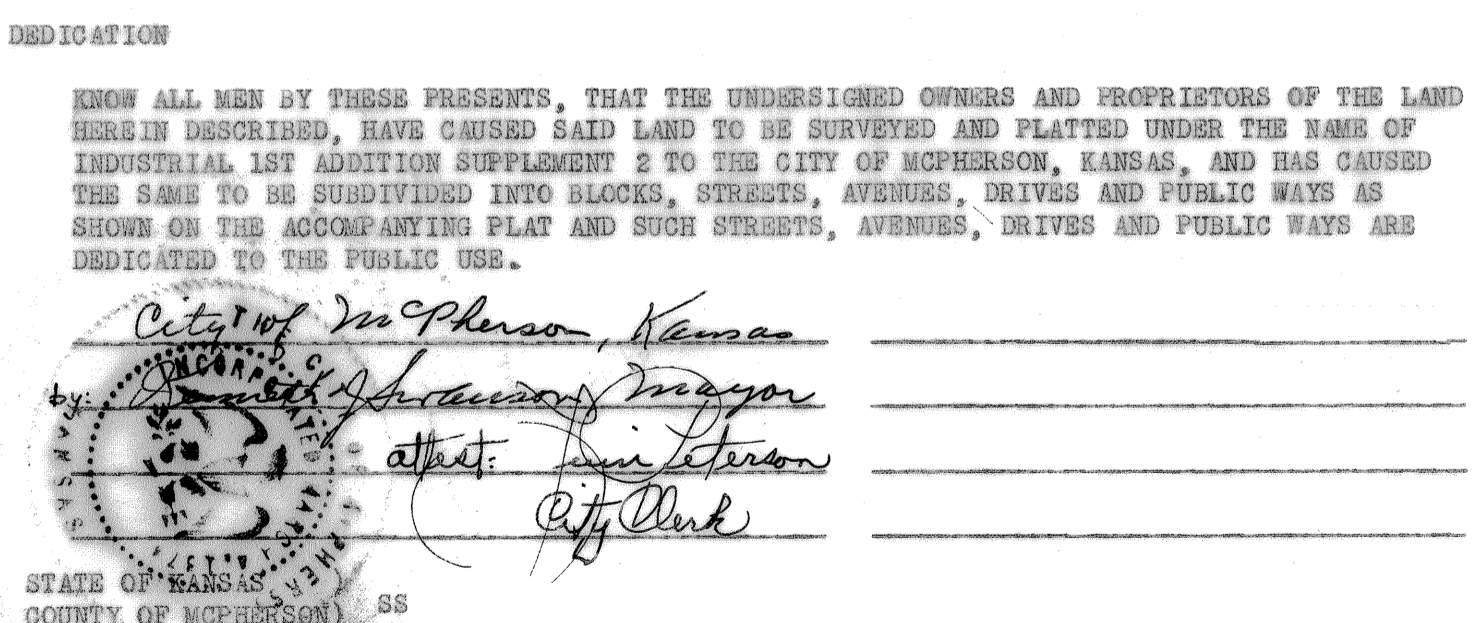 DEDICATION
KNOW ALL MEN BY THESE PRESENTS, THAT THE UNDERSIGNED OWNERS AND PROPRIETORS OF THE LAND
HEREIN DESCRIBED, HAVE CAUSED SAID LAND TO BE SURVEYED AND PLATTED UNDER THE NAME OF
INDUSTRIAL 1ST ADDITION SUPPLEMENT 2 TO THE CITY OF MCPHERSON, KANSAS, AND HAS CAUSED
THE SAME TO BE SUBDIVIDED INTO BLOCKS, STREETS, AVENUES, DRIVES AND PUBLIC WAYS AS
SHOWN ON THE ACCOMPANYING PLAT AND SUCH STREETS, AVENUES, DRIVES AND PUBLIC WAYS ARE
DEDICATED TO THE PUBLIC USE.
City of McPherson, Kansas
by: Kenneth J Swanson, Mayor
attest: Peterson
City Clerk
INCORPORATED
KANSAS
STATE OF KANSAS )
COUNTY OF MCPHERSON) SS